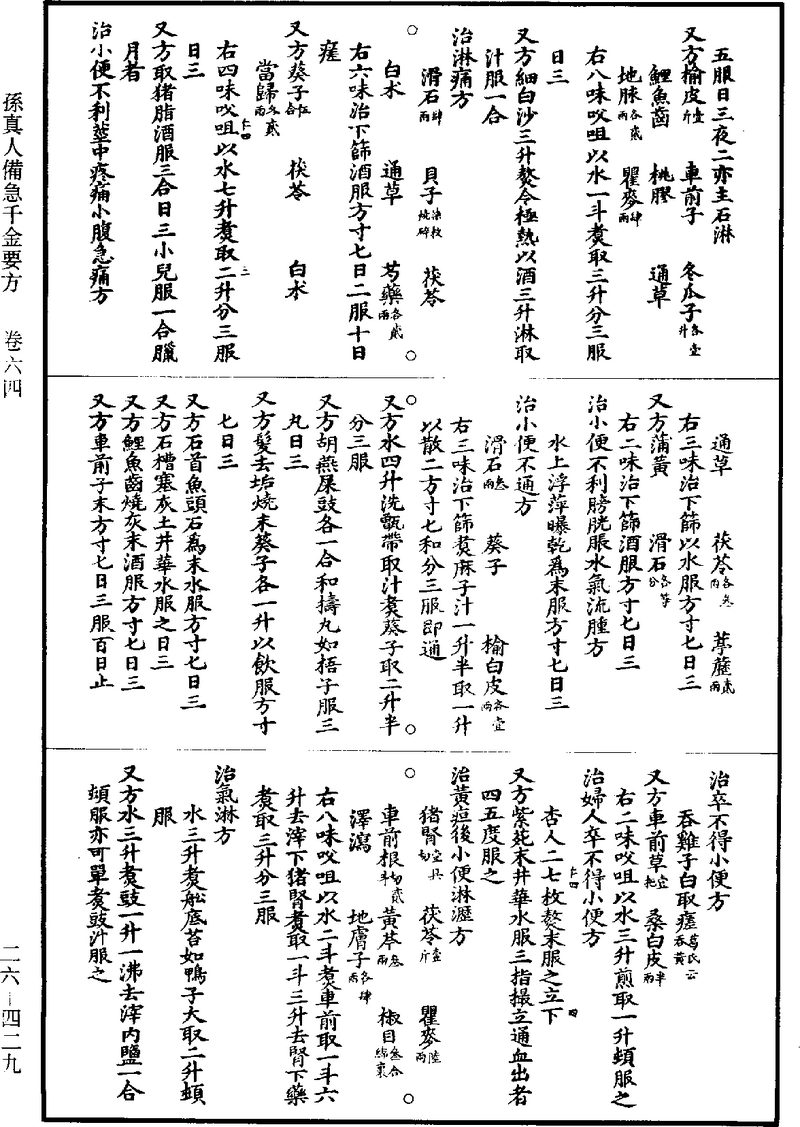 五服日三夜二亦主石淋
又方榆皮壹斤 車前子 冬瓜子各壹升
鯉魚齒 桃膠 通草
地脉各貳兩 瞿麥肆兩
右八味㕮咀以水一斗煑取三升分三服
日三
又方細白沙三升熬令極熱以酒三升淋取
汁服一合
治淋痛方
滑石肆兩 貝子柒枚燒碎 茯苓
白朮 通草 芍藥各貳兩
右六味治下篩酒服方寸匕日二服十日
瘥
又方葵子伍合 茯苓 白朮
當歸各貳兩
右四味㕮咀以水七升煑取二升分三服
日三
又方取猪脂酒服三合日三小兒服一合臘
月者
治小便不利莖中疼痛小腹急痛方
通草 茯苓各叁兩 葶藶貳兩
右三味治下篩以水服方寸匕日三
又方蒲黃 滑石各等分
右二味治下篩酒服方寸匕日三
治小便不利膀胱脹水氣流腫方
水上浮萍曝乾爲末服方寸匕日三
治小便不通方
滑石叁兩 葵子 榆白皮各壹兩
右三味治下篩煑麻子汁一升半取一升
以散二方寸匕和分三服即通
又方水四升洗甑帶取汁煑葵子取二升半
分三服
又方胡燕屎豉各一合和擣丸如梧子服三
丸日三
又方髮去垢燒末葵子各一升以飲服方寸
匕日三
又方石首魚頭石爲末水服方寸匕日三
又方石槽塞灰土井華水服之日三
又方鯉魚齒燒灰末酒服方寸匕日三
又方車前子末方寸匕日三服百日止
治卒不得小便方
吞雞子白取瘥葛氏云吞黃
又方車前草壹把 桑白皮半兩
右二味㕮咀以水三升煎取一升頓服之
治婦人卒不得小便方
杏人二七枚熬末服之立下
又方紫菀末井華水服三指撮立通血出者
四五度服之
治黃疸後小便淋瀝方
猪腎壹具切 茯苓壹斤 瞿麥陸兩
車前根切貳斗 黃芩叁兩 椒目叁合綿裹
澤瀉 地膚子各肆兩
右八味㕮咀以水二斗煑車前取一斗六
升去滓下猪腎煑取一斗三升去腎下藥
煑取三升分三服
治氣淋方
水三升煑舩底苔如鴨子大取二升頓
服
又方水三升煑豉一升一沸去滓内鹽一合
頓服亦可單煑豉汁服之
孫真人備急千金要方 卷六四
二六—四二九